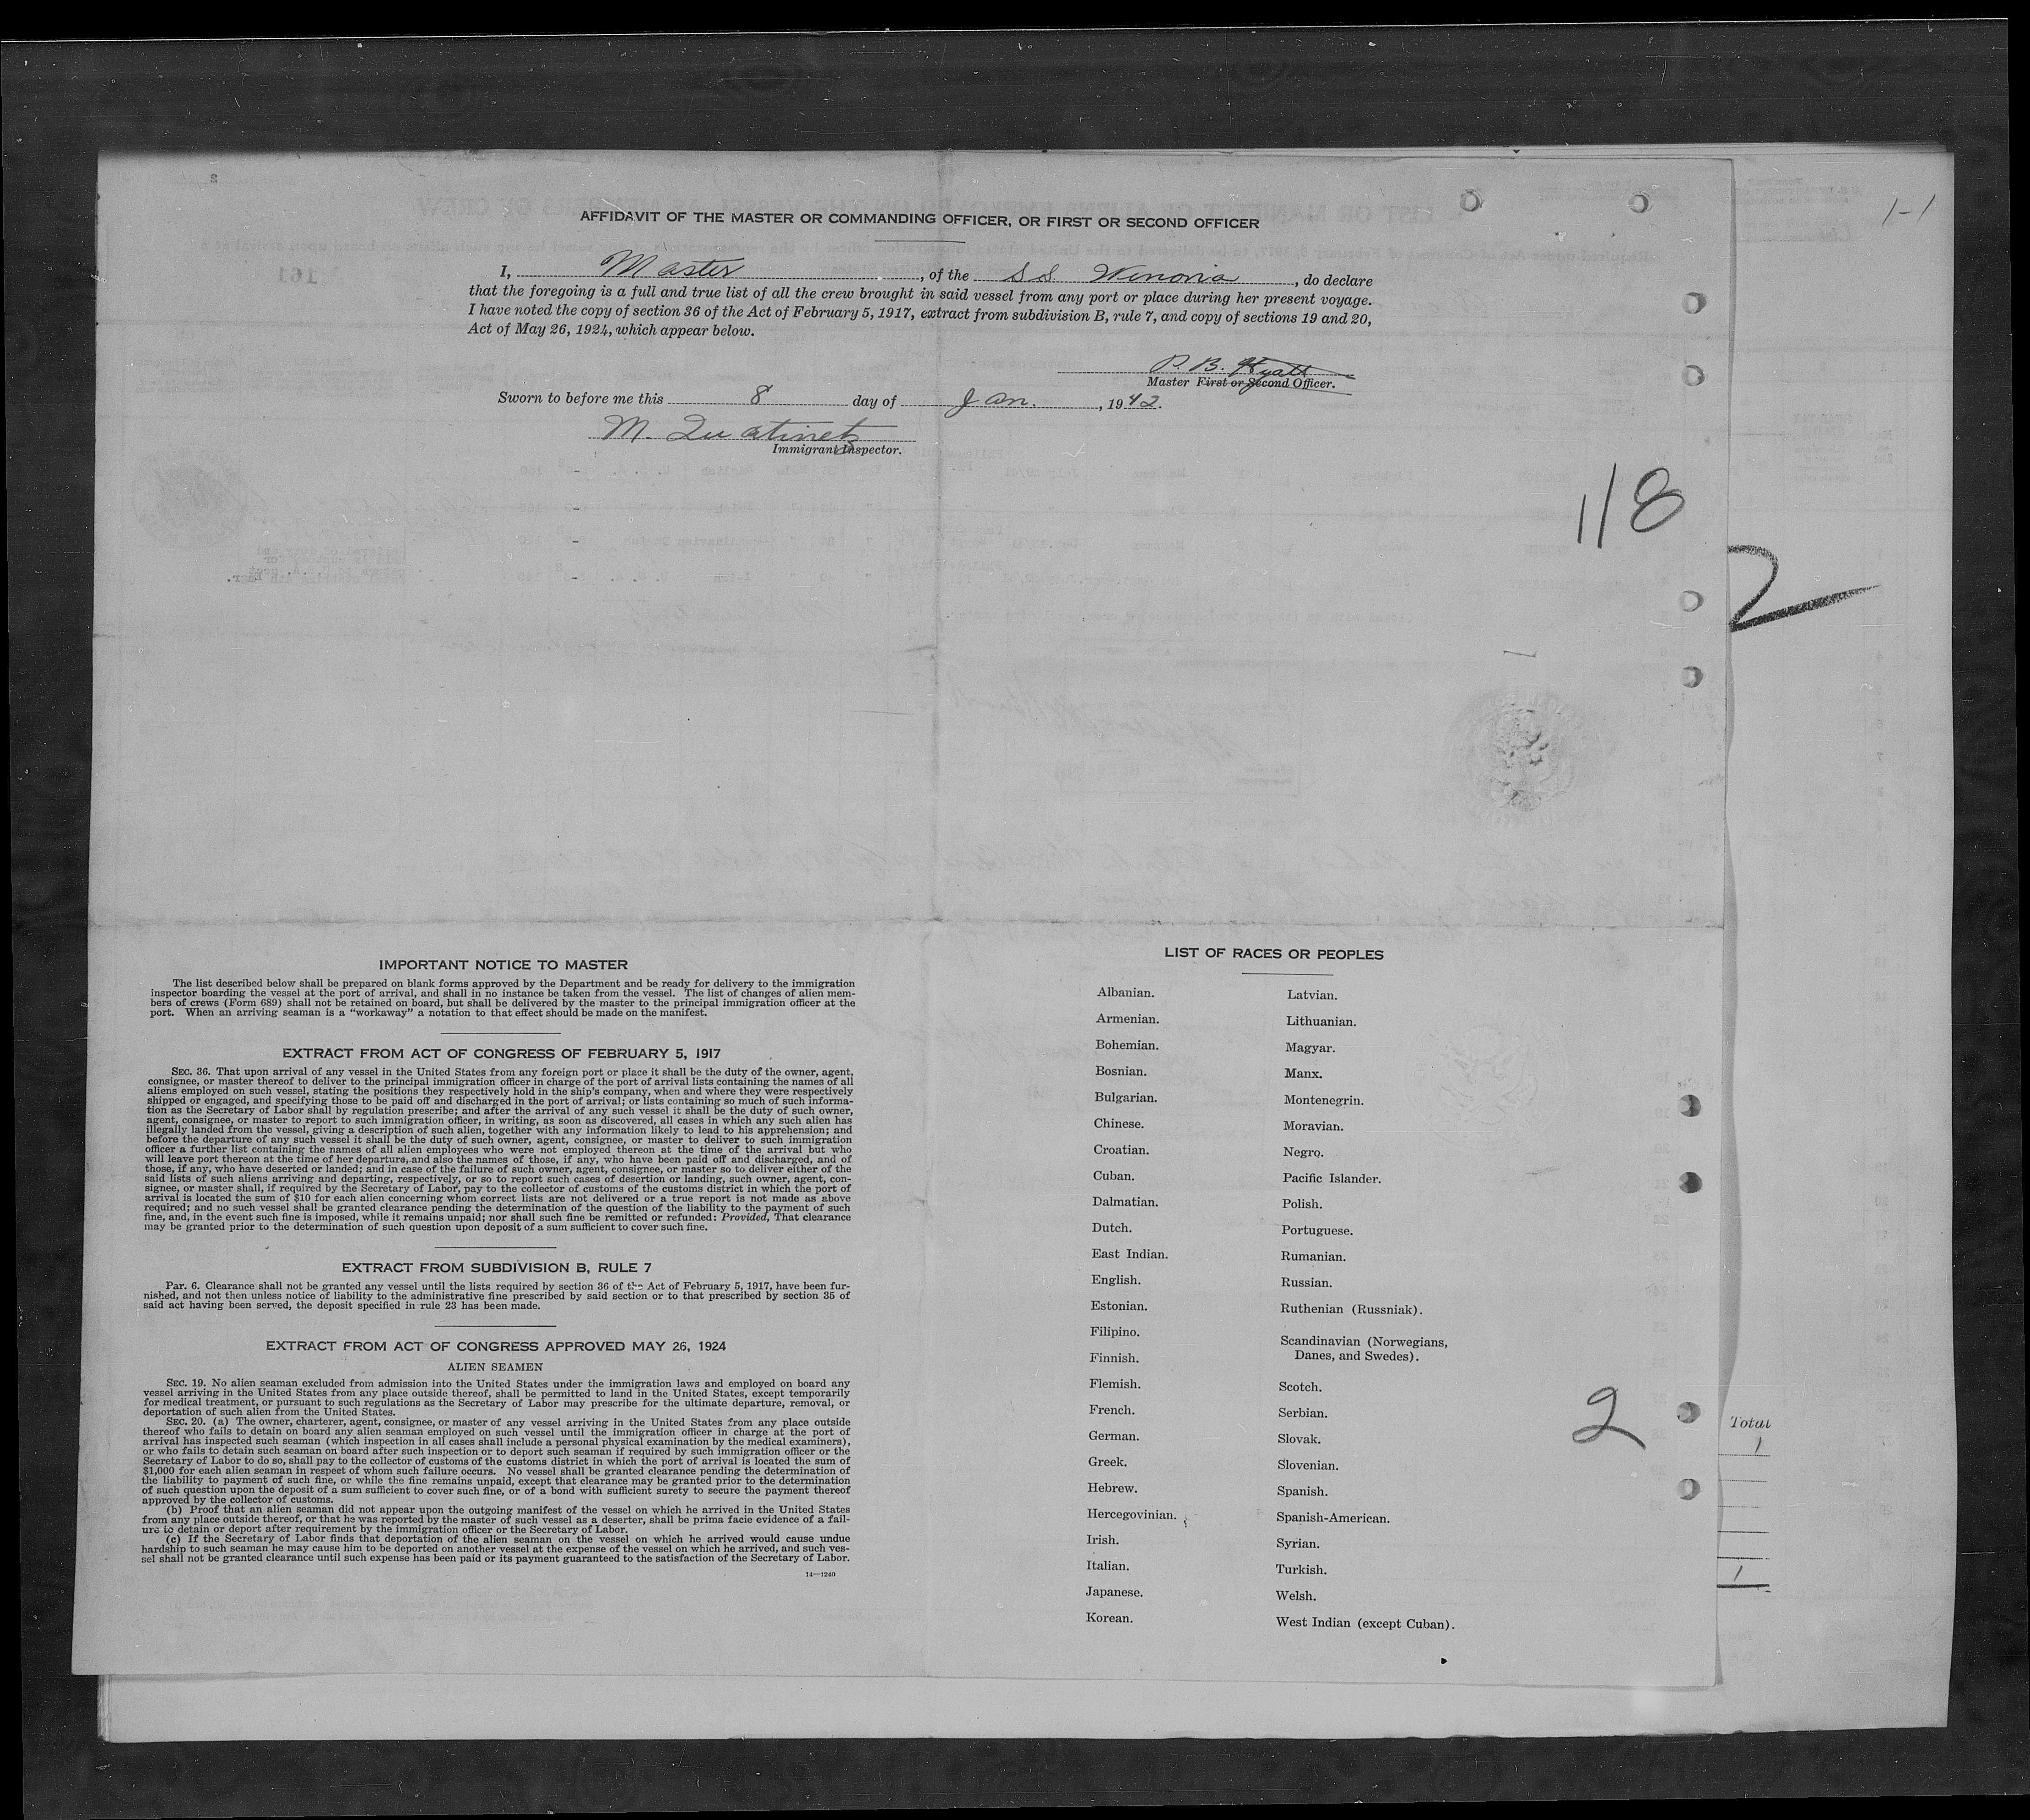 AFFIDAVIT OF THE MASTER OR COMMANDING OFFICER, OR FIRST OR SECOND OFFICER
I, Master, of the S.S. Winona, do declare
that the foregoing is a full and true list of all the crew brought in said vessel from any port or place during her present voyage.
I have noted the copy of section 36 of the Act of February 5, 1917, extract from subdivision B, rule 7, and copy of sections 19 and 20,
Act of May 26, 1924, which appear below.
P. B. Hyatt
Master First or Second Officer.
Sworn to before me this 8 day of Jan., 1942.
M.
Immigrant Inspector.
1-1
1/8
2
IMPORTANT NOTICE TO MASTER
The list described below shall be prepared on blank forms approved by the Department and be ready for delivery to the immigration
inspector boarding the vessel at the port of arrival, and shall in no instance be taken from the vessel. The list of changes of alien mem-
bers of crews (Form 689) shall not be retained on board, but shall be delivered by the master to the principal immigration officer at the
port. When an arriving seaman is a "workaway" a notation to that effect should be made on the manifest.
EXTRACT FROM ACT OF CONGRESS OF FEBRUARY 5, 1917
SEC. 36. That upon arrival of any vessel in the United States from any foreign port or place it shall be the duty of the owner, agent,
consignee, or master thereof to deliver to the principal immigration officer in charge of the port of arrival lists containing the names of all
aliens employed on such vessel, stating the positions they respectively hold in the ship's company, when and where they were respectively
shipped or engaged, and specifying those to be paid off and discharged in the port of arrival; or lists containing so much of such informa-
tion as the Secretary of Labor shall by regulation prescribe; and after the arrival of any such vessel it shall be the duty of such owner,
agent, consignee, or master to report to such immigration officer, in writing, as soon as discovered, all cases in which any such alien has
illegally landed from the vessel, giving a description of such alien, together with any information likely to lead to his apprehension; and
before the departure of any such vessel it shall be the duty of such owner, agent, consignee, or master to deliver to such immigration
officer a further list containing the names of all alien employees who were not employed thereon at the time of the arrival but who
will leave port thereon at the time of her departure, and also the names of those, if any, who have been paid off and discharged, and of
those, if any, who have deserted or landed; and in case of the failure of such owner, agent, consignee, or master so to deliver either of the
said lists of such aliens arriving and departing, respectively, or so to report such cases of desertion or landing, such owner, agent, con-
signee, or master shall, if required by the Secretary of Labor, pay to the collector of customs of the customs district in which the port of
arrival is located the sum of $10 for each alien concerning whom correct lists are not delivered or a true report is not made as above
required; and no such vessel shall be granted clearance pending the determination of the question of the liability to the payment of such
fine, and, in the event such fine is imposed, while it remains unpaid; nor shall such fine be remitted or refunded: Provided, That clearance
may be granted prior to the determination of such question upon deposit of a sum sufficient to cover such fine.
EXTRACT FROM SUBDIVISION B, RULE 7
Par. 6. Clearance shall not be granted any vessel until the lists required by section 36 of the Act of February 5, 1917, have been fur-
nished, and not then unless notice of liability to the administrative fine prescribed by said section or to that prescribed by section 35 of
said act having been served, the deposit specified in rule 23 has been made.
EXTRACT FROM ACT OF CONGRESS APPROVED MAY 26, 1924
ALIEN SEAMEN
SEC. 19. No alien seaman excluded from admission into the United States under the immigration laws and employed on board any
vessel arriving in the United States from any place outside thereof, shall be permitted to land in the United States, except temporarily
for medical treatment, or pursuant to such regulations as the Secretary of Labor may prescribe for the ultimate departure, removal, or
deportation of such alien from the United States.
SEC. 20. (a) The owner, charterer, agent, consignee, or master of any vessel arriving in the United States from any place outside
thereof who fails to detain on board any alien seaman employed on such vessel until the immigration officer in charge at the port of
arrival has inspected such seaman (which inspection in all cases shall include a personal physical examination by the medical examiners),
or who fails to detain such seaman on board after such inspection or to deport such seaman if required by such immigration officer or the
Secretary of Labor to do so, shall pay to the collector of customs of the customs district in which the port of arrival is located the sum of
$1,000 for each alien seaman in respect of whom such failure occurs. No vessel shall be granted clearance pending the determination of
the liability to payment of such fine, or while the fine remains unpaid, except that clearance may be granted prior to the determination
of such question upon the deposit of a sum sufficient to cover such fine, or of a bond with sufficient surety to secure the payment thereof
approved by the collector of customs.
(b) Proof that an alien seaman did not appear upon the outgoing manifest of the vessel on which he arrived in the United States
from any place outside thereof, or that he was reported by the master of such vessel as a deserter, shall be prima facie evidence of a fail-
ure to detain or deport after requirement by the immigration officer or the Secretary of Labor.
(c) If the Secretary of Labor finds that deportation of the alien seaman on the vessel on which he arrived would cause undue
hardship to such seaman he may cause him to be deported on another vessel at the expense of the vessel on which he arrived, and such ves-
sel shall not be granted clearance until such expense has been paid or its payment guaranteed to the satisfaction of the Secretary of Labor.
14—1240
LIST OF RACES OR PEOPLES
Albanian.
Armenian.
Bohemian.
Bosnian.
Bulgarian.
Chinese.
Croatian.
Cuban.
Dalmatian.
Dutch.
East Indian.
English.
Estonian.
Filipino.
Finnish.
Flemish.
French.
German.
Greek.
Hebrew.
Hercegovinian.
Irish.
Italian.
Japanese.
Korean.
Latvian.
Lithuanian.
Magyar.
Manx.
Montenegrin.
Moravian.
Negro.
Pacific Islander.
Polish.
Portuguese.
Rumanian.
Russian.
Ruthenian (Russniak).
Scandinavian (Norwegians,
Danes, and Swedes).
Scotch.
Serbian.
Slovak.
Slovenian.
Spanish.
Spanish-American.
Syrian.
Turkish.
Welsh.
West Indian (except Cuban).
2
Total
1
1